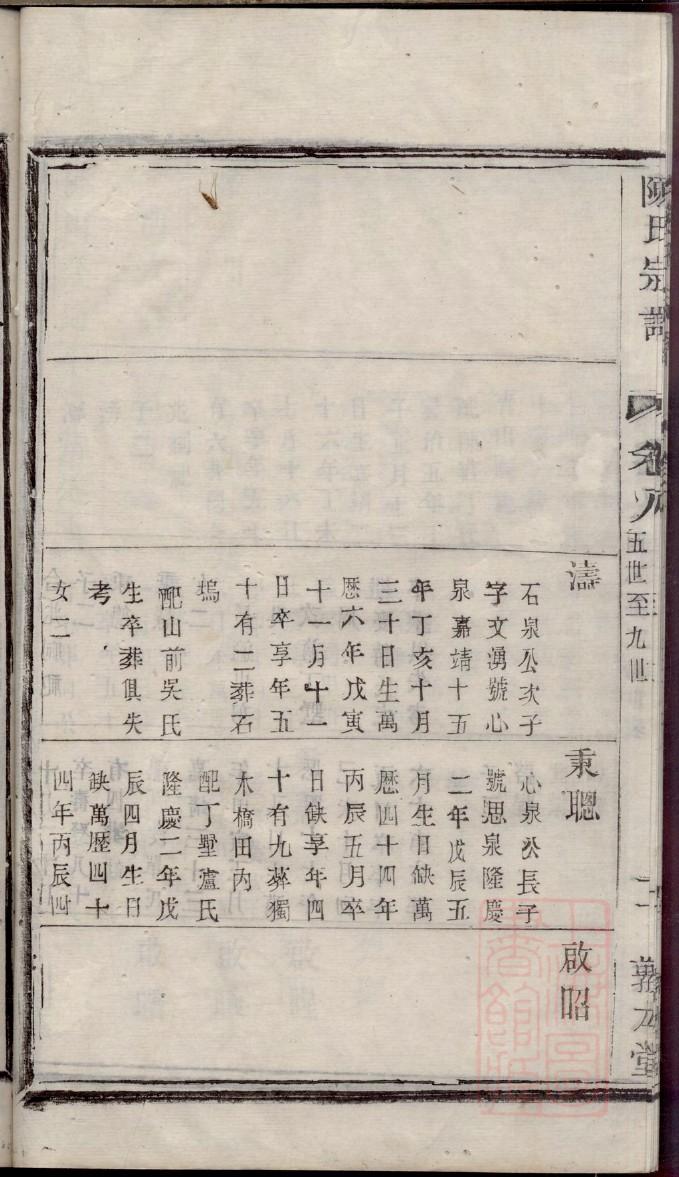 陳氏宗譜
卷九
五世至九世
二
濤
石泉公次子
字文湧號心
泉嘉靖十五
年丁亥十月
三十日生萬
歷六年戊寅
十一月十一
日卒享年五
十有二葬石
塢
配山前吳氏
生卒葬俱失
考
女二
秉聰
心泉公長子
號思泉隆慶
二年戊辰五
月生日缺萬
歷四十四年
丙辰五月卒
日缺享年四
十有九葬獨
木橋田內
配丁墅盧氏
隆慶二年戊
辰四月生日
缺萬歷四十
四年丙辰四
啟昭